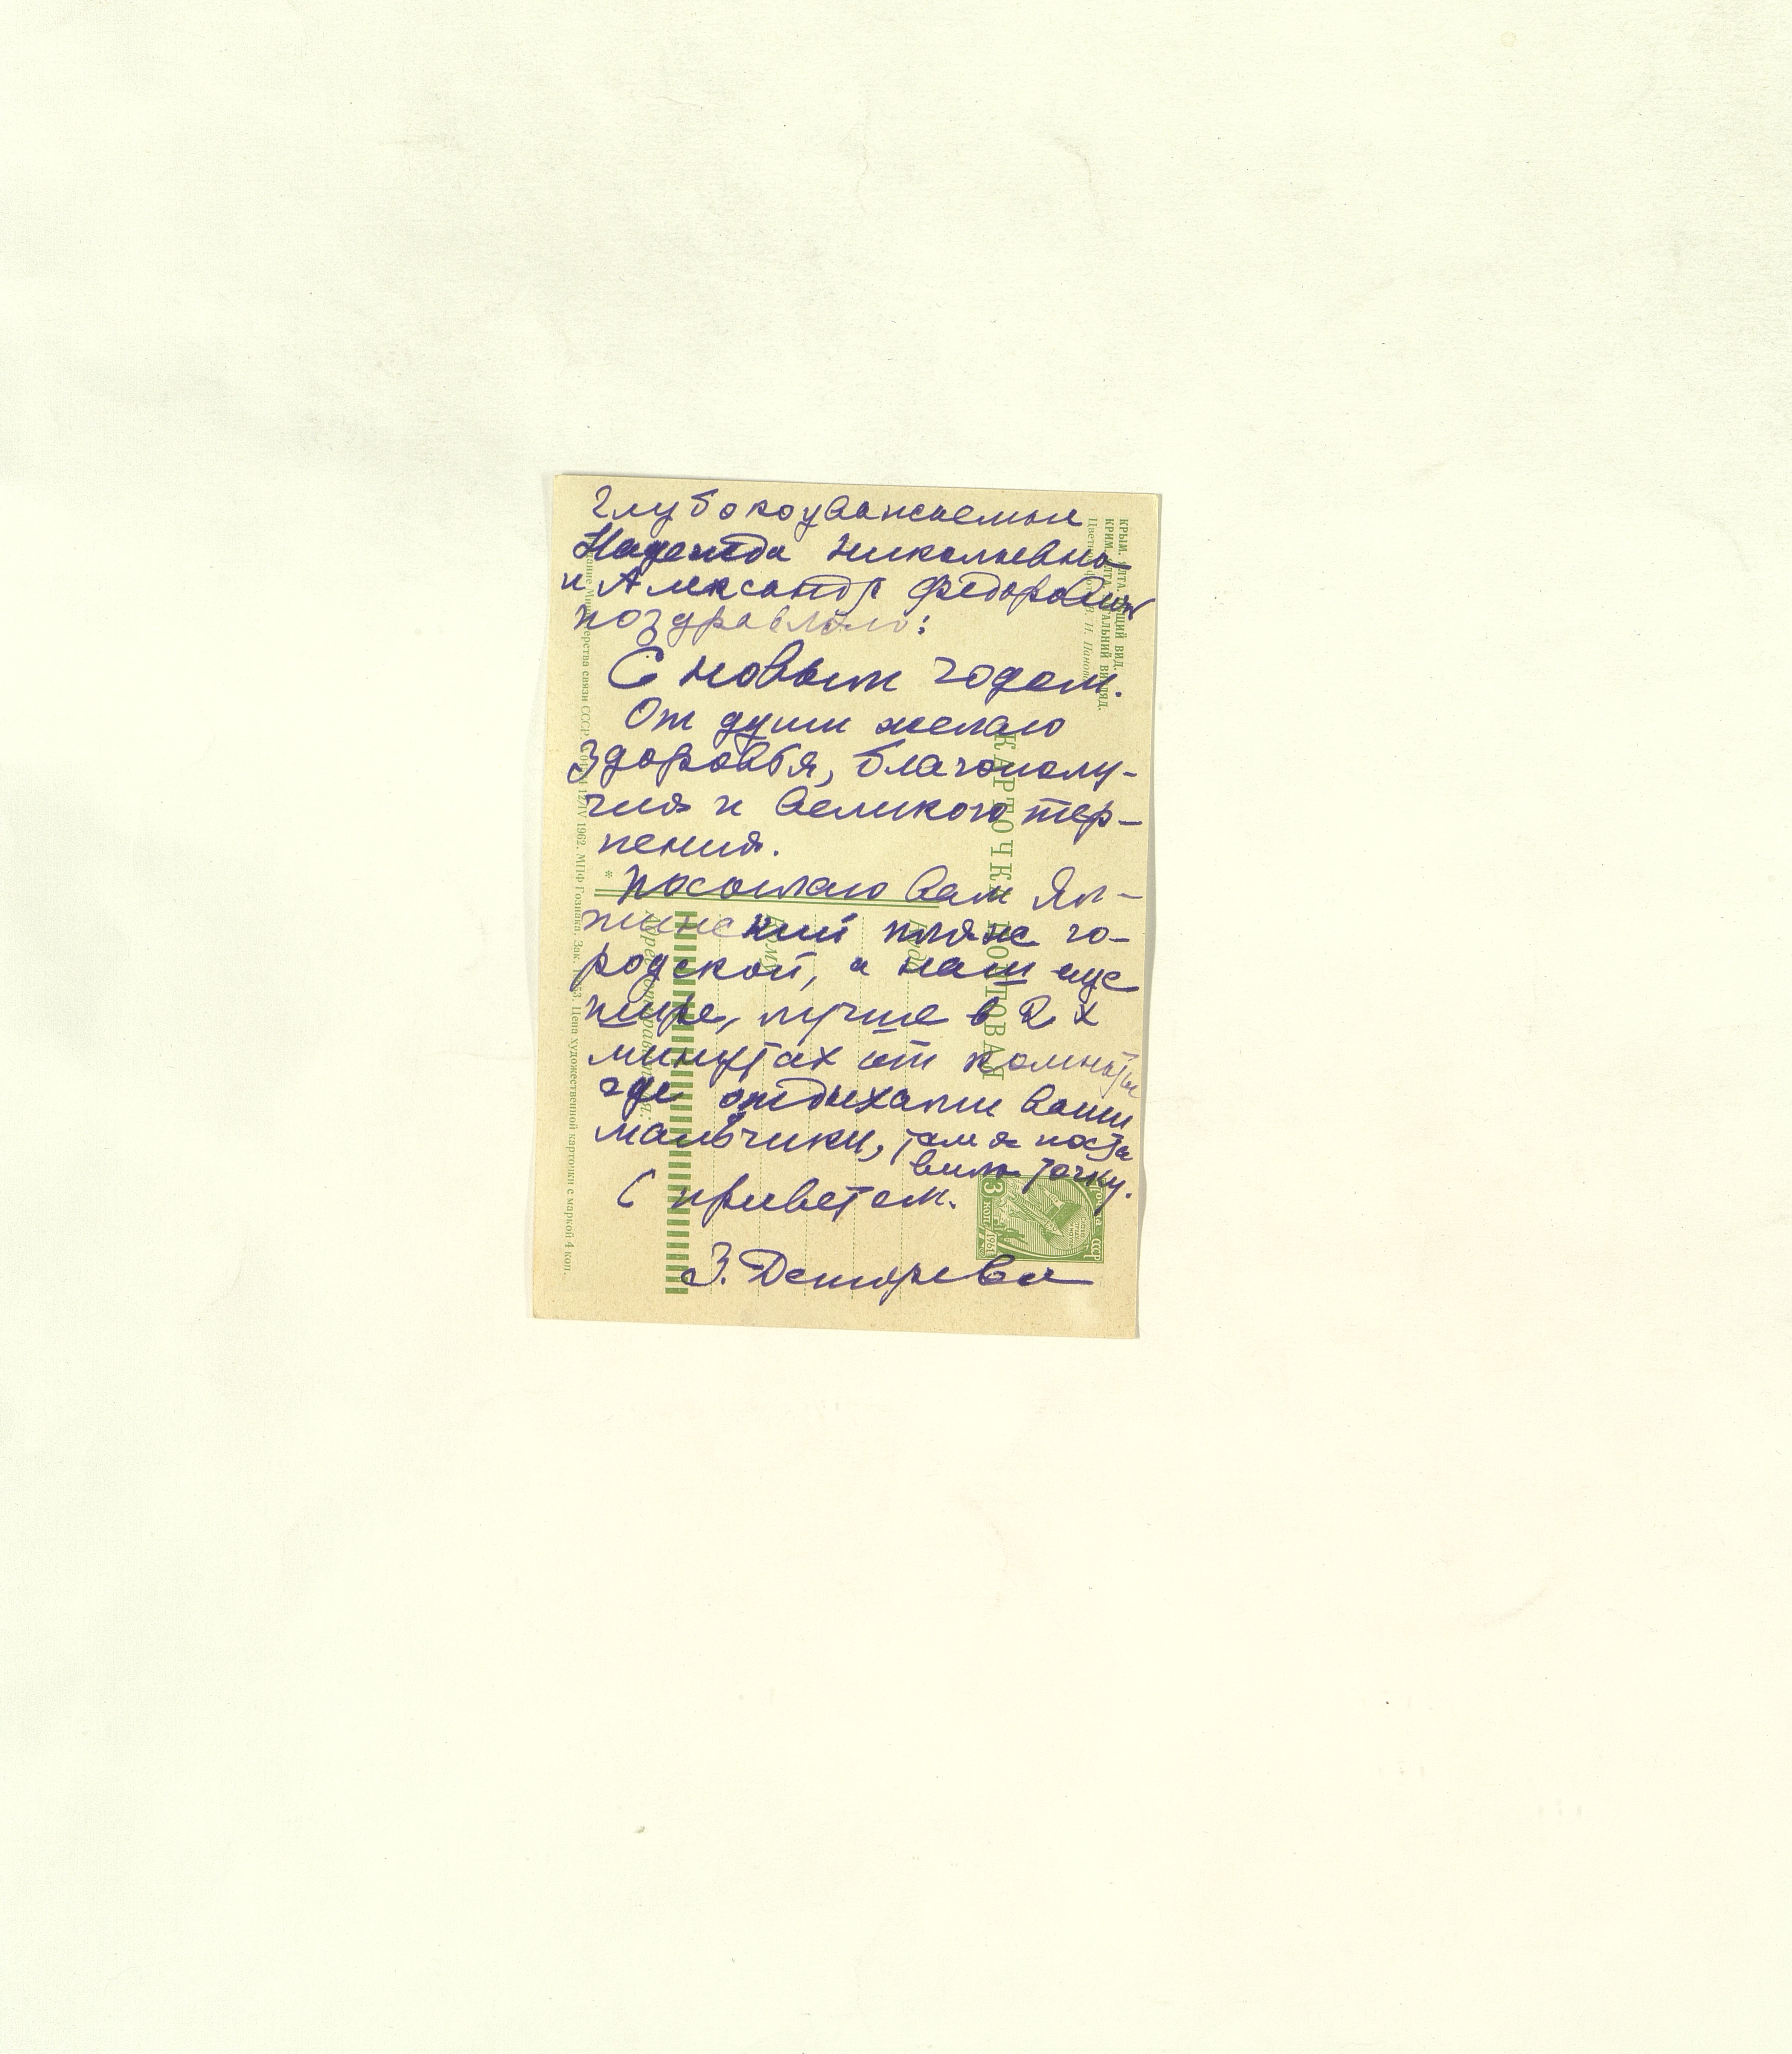 Глубокоуважаемые
Надежда Николаевна
и Александр Федорович
поздравляю:
С новым годом.
От души желаю
здоровья, благополу-
чия и великого тер-
пения.
Посылаю вам Ял-
тинский пляж го-
родской, а наш еще
шире, лучше в 2х
минутах от комнаты
где отдыхали ваши
мальчики, там я поста
вила точку.
С приветом.
З.
КРЫМ. ЯЛТА. ОБЩИЙ ВИД.
КРИМ. ЯЛТА. ЗАГАЛЬНИЙ ВИГЛЯД.
Цветное фото И. Панова
КАРТОЧКА ПОЧТОВАЯ
Куда
Кому
Адрес отправителя:
Издание Министерства связи СССР. 12/IV 1962. МПФ Гознака. Зак. Цена художественной карточки с маркой 4 коп.
Почта СССР
3 коп. 1961